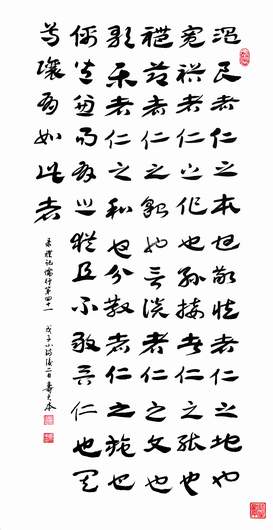 溫良者仁之本也敬慎者仁之地也
寬裕者仁之作也孫接者仁之能也
禮節者仁之貌也言談者仁之文也
歌樂者仁之和也分散者仁之施也
儒皆兼而有之猶且不敢言仁也其
尊讓有如此者
录禮記儒行第四十一 戊子小 後二日